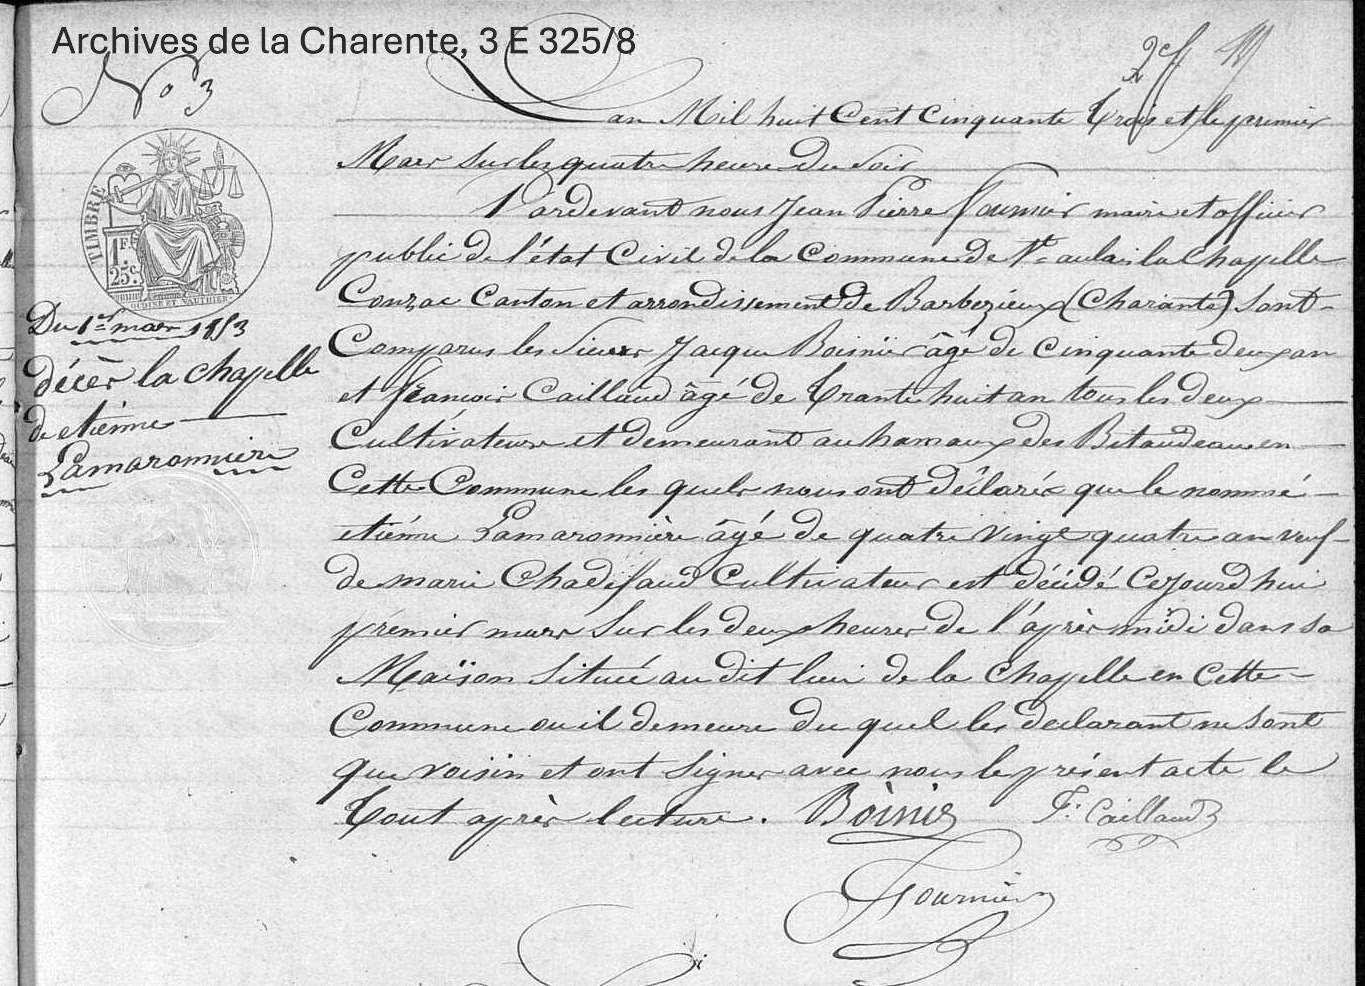 Archives de la Charente, 3 E 325/8
No 3
TIMBRE
1 F.
25 c.
OUDINE ET VAUTHIER
Du 1er mars 1853
décès la chapelle
de etiénne
Lamaronnière
L'an Mil huit Cent Cinquante trois et le premier
Mars sur les quatre heure du soir
Pardevant nous Jean Pierre Fournier maire et officier
public de l'état Civil de la Commune de St aulais la Chapelle
Conzac Canton et arrondissement de Barbezieux (Charante) sont
Comparus les sieurs Jacque Boinier âgé de Cinquante deux an
et François Caillaud âgé de trante huit an tous les deux
Cultivateurs et demeurant au hamaux des Bitaudeau en
Cette Commune les quels nous ont déclaréx que le nommé
etiénne Lamaronnière âgé de quatre vingt quatre an veuf
de marie Chadefaud Cultivateur est décédé Cejourdhui
premier mars sur les deux heures de l'après midi dans sa
Maison située au dit lieu de la Chapelle en Cette
Commune ou il demeure du quel les declarant ne sont
que voisin et ont signer avec nous le présent acte le
tout après lecture. Boinie F. Caillaud
Fournier